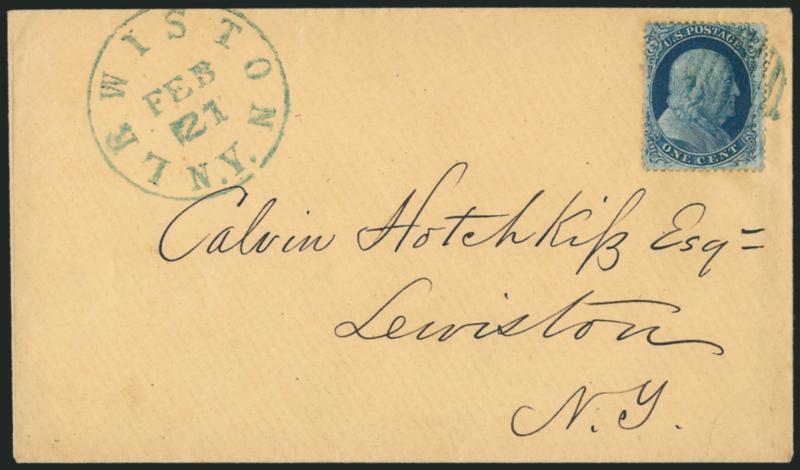 LEWISTON N.Y.
FEB
21
U.S. POSTAGE
ONE CENT
Calvin Hotchkiß Esq=
Lewiston
N.Y.